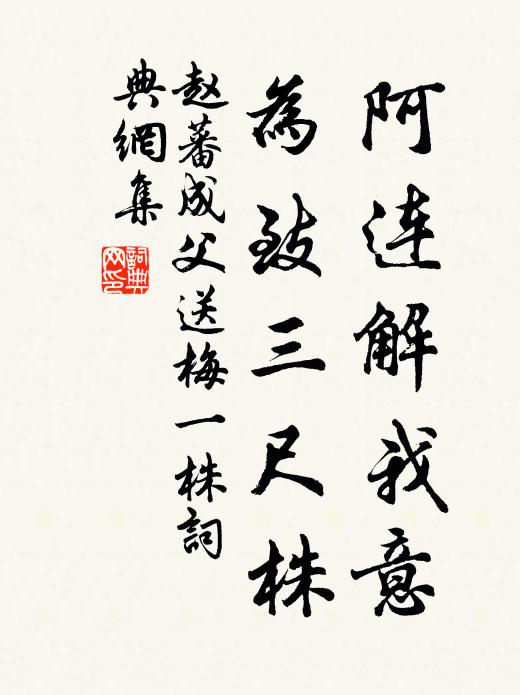 阿连解我意
為致三尺株
赵蕃成父送梅一株詞
典網集
詞典
网印